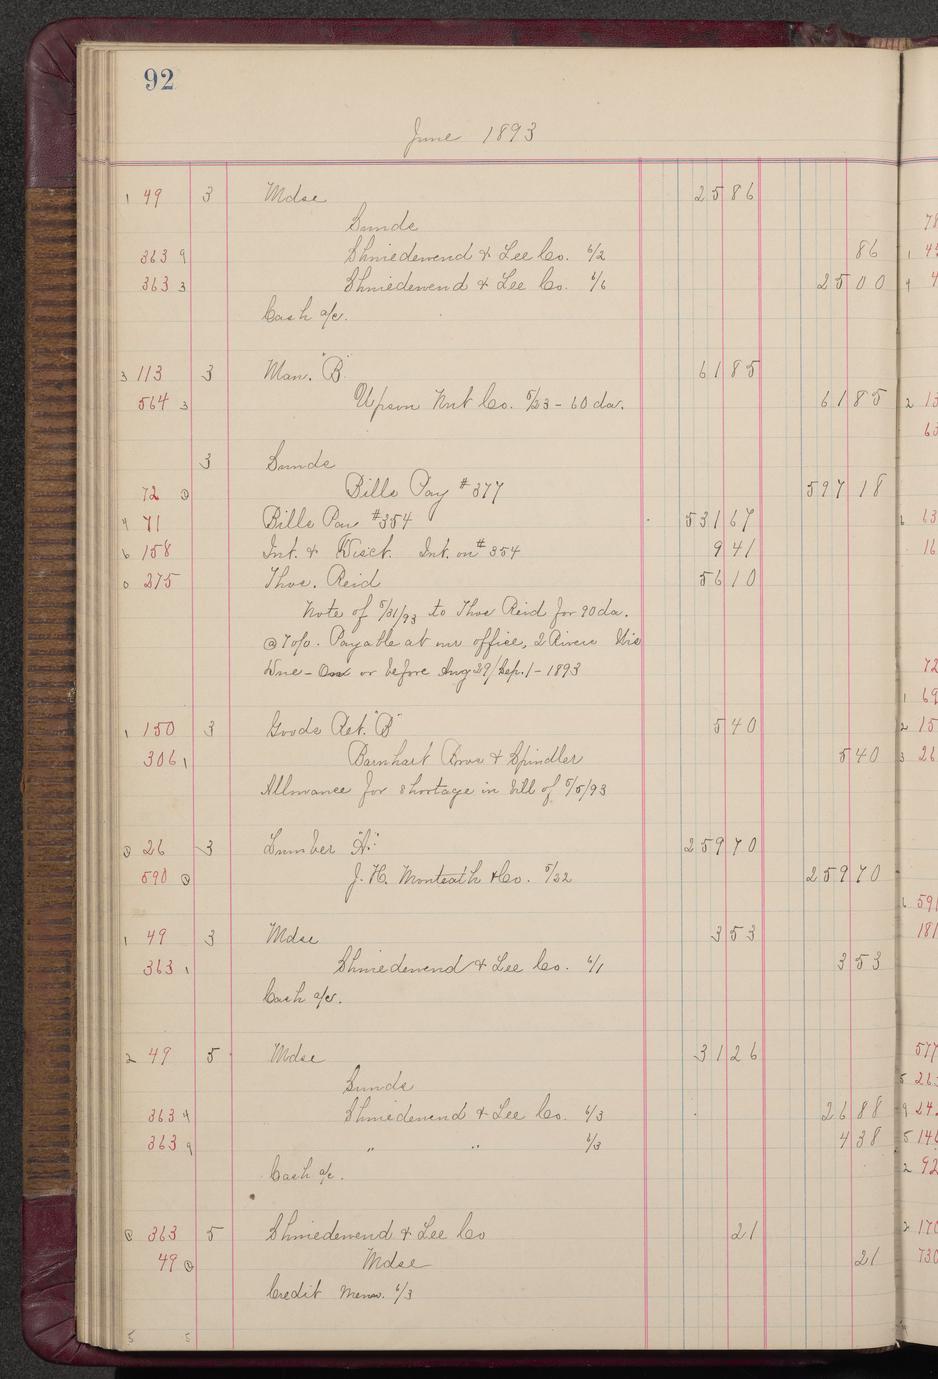 92
June 1893
1 49 3 Mdse 25 86
Sunds
363 9 Shniedewend & Lee Co. 6/2 86
363 3 Shniedewend & Lee Co. 6/6 25 00
Cash a/c.
3 113 3 Man. "B" 61 85
564 3 Upson Nut Co. 5/23 - 60 da. 61 85
3 Sunds
72 Bills Pay #377 597 18
4 71 Bills Pay #354 531 67
6 158 Int. & Disct. Int. on #354 9 41
0 275 Thos. Reid 56 10
Note of 5/31/93 to Thos Reid for 90 da.
@ 7%. Payable at our office, 2 Rivers Wis
Due - On or before Aug 29/Sep. 1 - 1893
1 150 3 Goods Ret. "B" 5 40
306 1 Barnhart Bros & Spindler 5 40
Allowance for shortage in bill of 5/5/93
26 3 Lumber "A". 259 70
590 J. H. Monteath & Co. 5/22 259 70
1 49 3 Mdse 3 53
363 1 Shniedewend & Lee Co. 6/1 3 53
Cash a/c.
2 49 5 Mdse 31 26
Sunds
363 4 Shniedewend & Lee Co. 6/3 26 88
363 9 " " 6/3 4 38
Cash a/c.
363 5 Shniedewend & Lee Co 21
49 Mdse 21
Credit Memo. 6/3
5 5